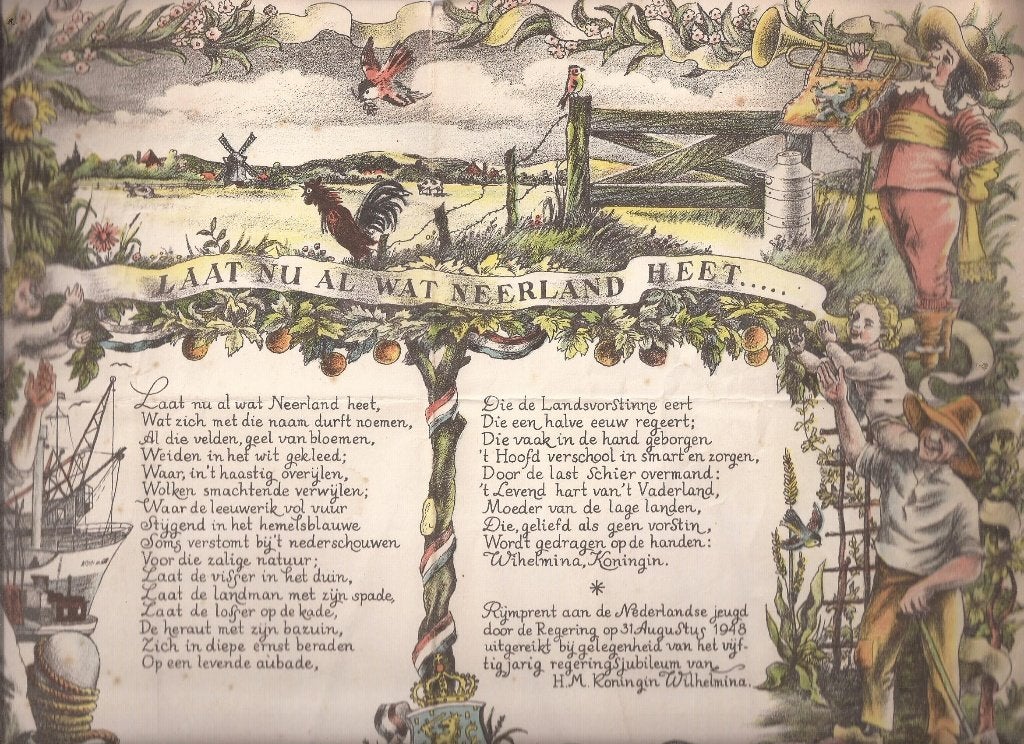 LAAT NU AL WAT NEERLAND HEET.....
Laat nu al wat Neerland heet,
Wat zich met die naam durft noemen,
Al die velden, geel van bloemen,
Weiden in het wit gekleed;
Waar, in't haastig overijlen,
Wolken smachtende verwijlen;
Waar de leeuwerik vol vuur
Stijgend in het hemelsblauwe
Soms verstomt bij't nederschouwen
Voor die zalige natuur;
Laat de visser in het duin,
Laat de landman met zijn spade,
Laat de losser op de kade,
De heraut met zijn bazuin,
Zich in diepe ernst beraden
Op een levende aubade,
Die de Landsvorstinne eert
Die een halve eeuw regeert;
Die vaak in de hand geborgen
't Hoofd verschool in smart en zorgen,
Door de last schier overmand:
't Levend hart van 't Vaderland,
Moeder van de lage landen,
Die, geliefd als geen vorstin,
Wordt gedragen op de handen:
Wilhelmina, Koningin.
*
Rijmprent aan de Nederlandse jeugd
door de Regering op 31 Augustus 1948
uitgereikt bij gelegenheid van het vijf-
tigjarig regeringsjubileum van
H.M. Koningin Wilhelmina.